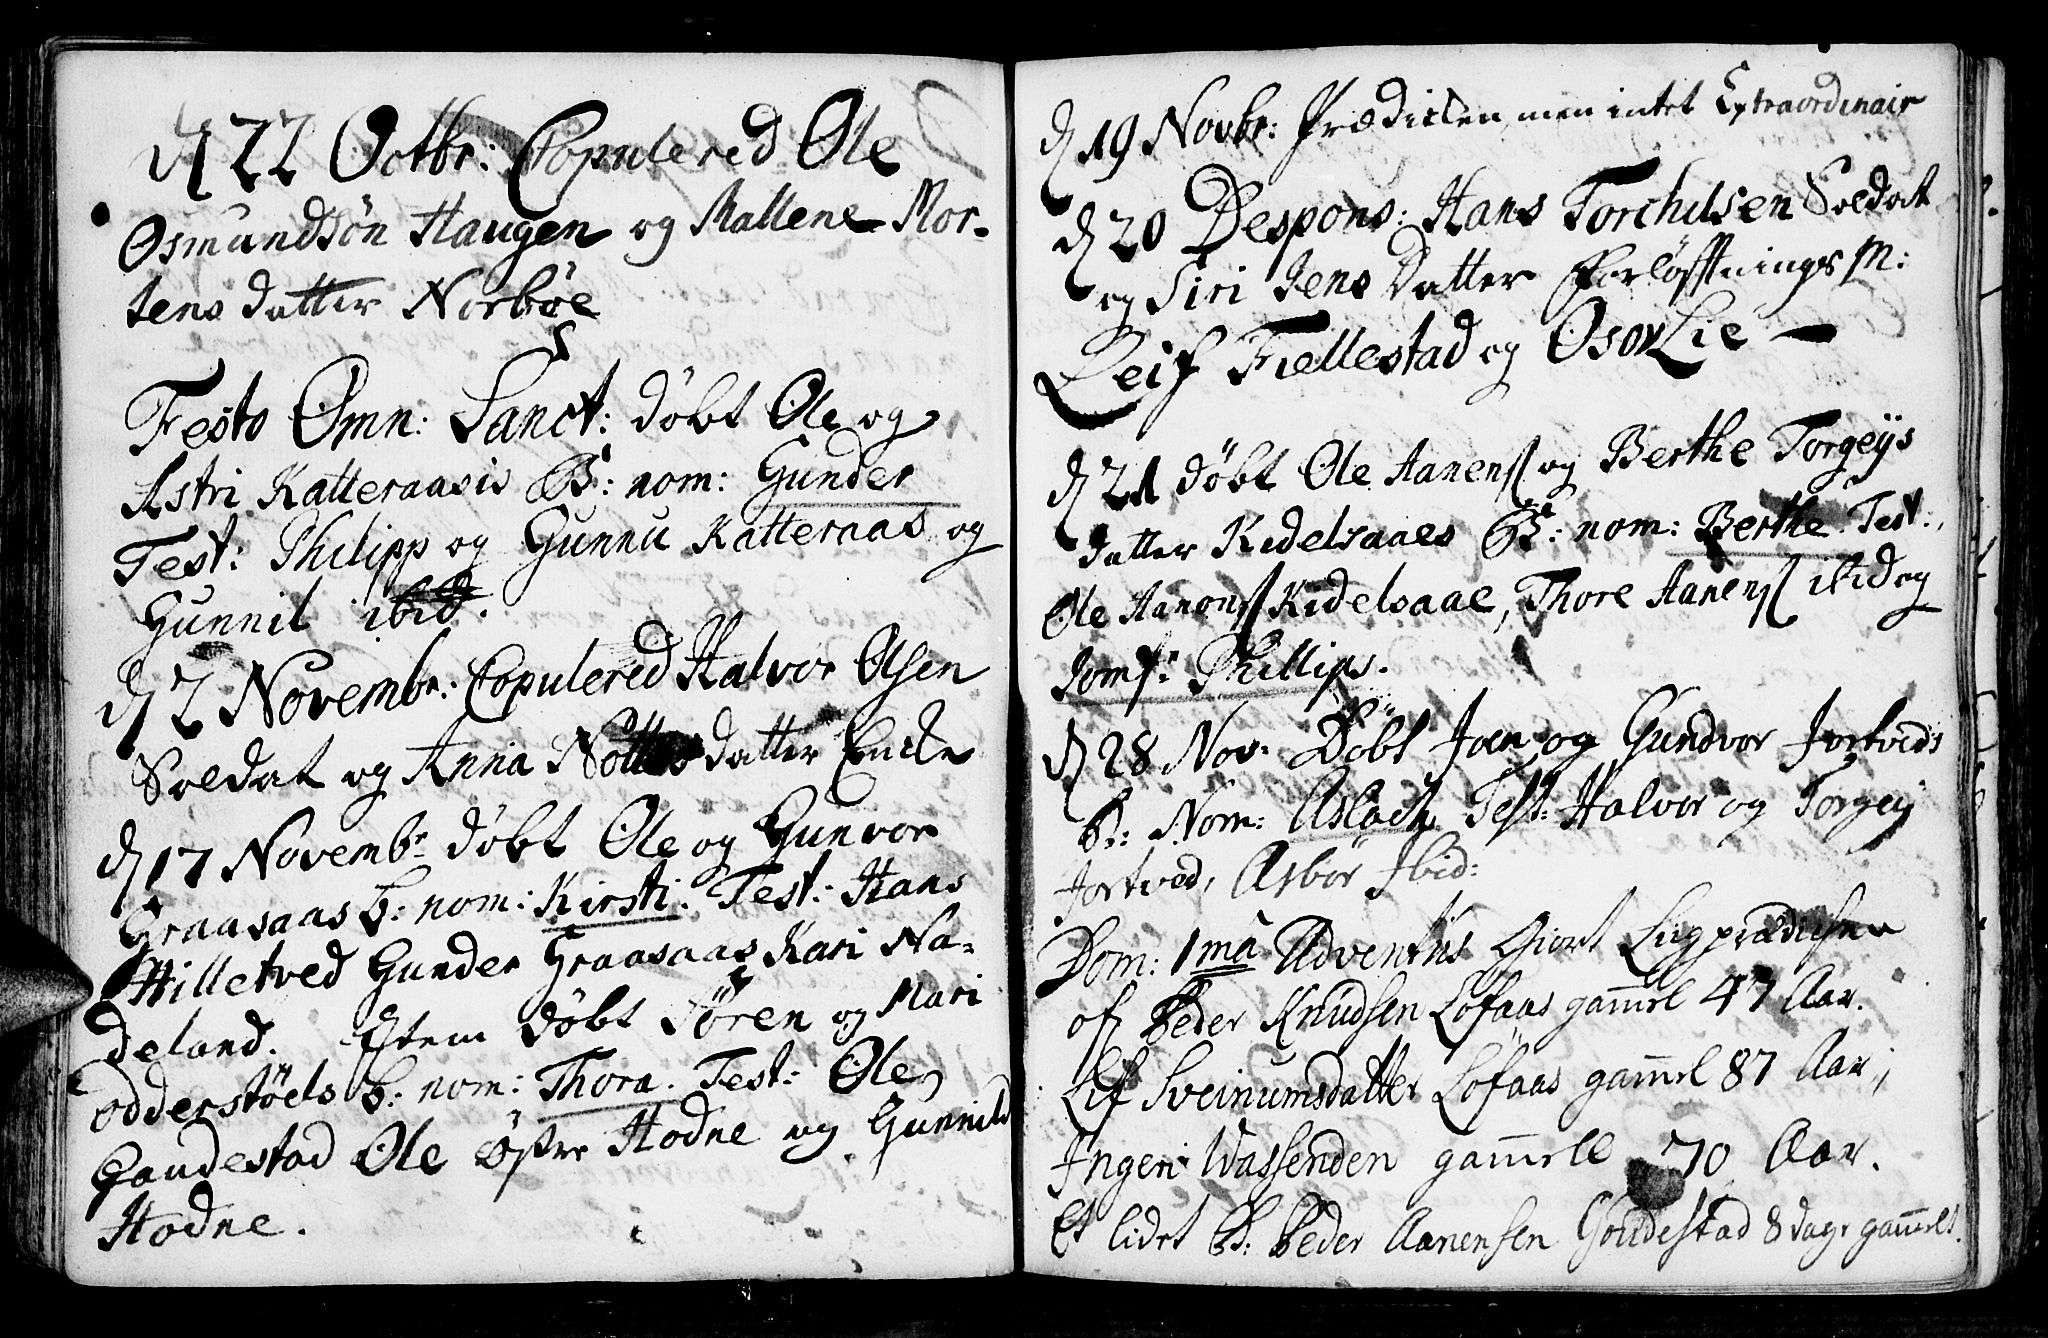 d 22 Octbr: Copulered Ole
Osmundsøn Haugen og Mallene Mor-
tens datter Norbøe
Festo Omn: Sanct: døbt Ole og
Astri Katteraasis B: nom: Gunder
Test: Philipp og Gunnu Katteraas og
Gunnil ibid.
d 2 Novembr: Copulered Halvor Olsen
Soldat og Anna datter Encke
d 17 Novembr døbt Ole og Gunvor
Graasaas B: nom: Kirsti. Test: Hans
Hilletved Gunder Graasaas Kari Na-
deland. Item døbt Søren og Mari
Odderstøels B: nom: Thora. Test: Ole
Gaudestad Ole østre Hodne og Gunnild
Hodne.
d 19 Novbr: Prædicken men intet Extraordinair
d 20 Despons: Hans Torchilsen Soldat
og Siri Jens Datter Forløffnings M:
Leif Fiellestad og Osov Lie —
d 21 døbt Ole Aanens og Berthe Torgeijs
datter Kidelsaaes B: nom: Berthe Test:
Ole Aanons Kidelsaae, Thore Aanens ibid og
Jomf: Phillips.
d 28 Nov: Døbt Joen og Gundvor Jortveds
B: Nom: Aslach Test: Halvor og Torgeij
Jortved, Asbør Ibid:
Dom: 1ma Adventus Giort Liigprædichen
of Peder Knudsen Løfaas gamel 47 Aar.
Lif Sveinumsdatter Løfaas gamel 87 Aar,
Ingeri Wassenden gamell 70 Aar.
Et lidet B: Peder Aanensen Goudestad 8 dage gamelt.